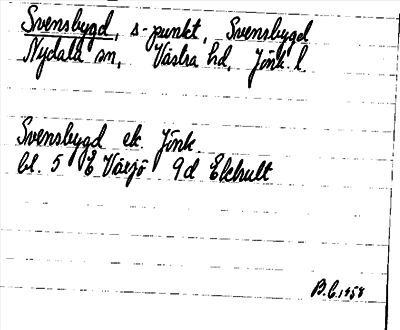 Svensbygd, s-punkt, Svensbygd
Nydala sn, Västra hd, Jönk. l.
Svensbygd ek. Jönk.
bl. 5 E Växjö 9d Ekhult
B.C. 1958